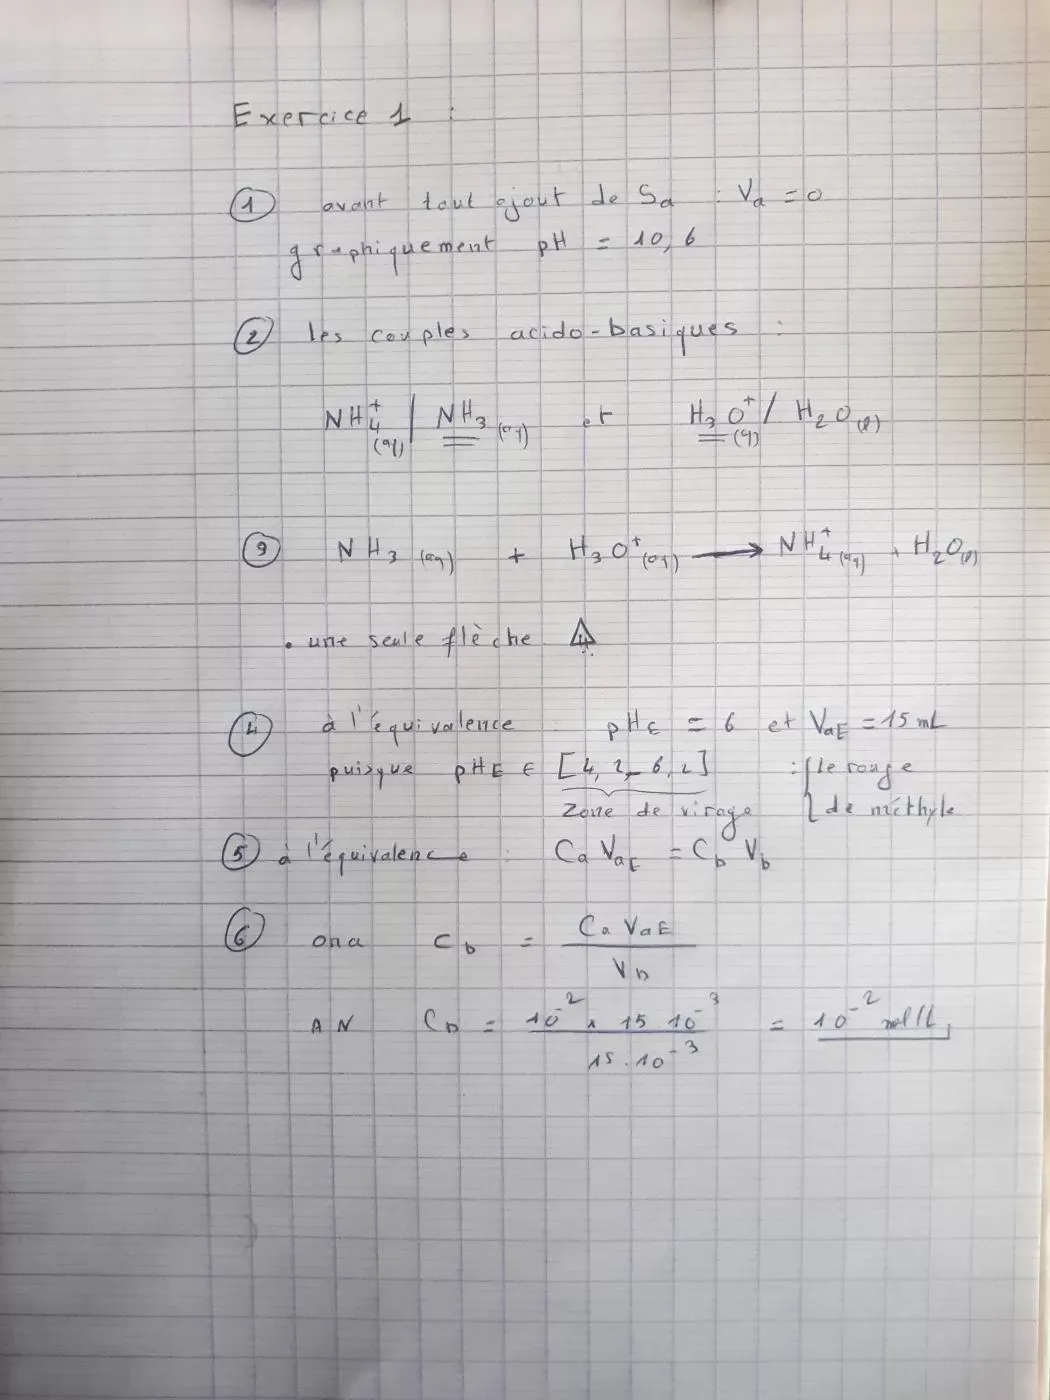 Exercice 1 :
① avant tout ajout de Sa : Va = 0
graphiquement pH = 10,6
② les couples acido-basiques :
NH4+(aq) / NH3(aq) et H3O+(aq) / H2O(l)
③ NH3(aq) + H3O+(aq) → NH4+(aq) + H2O(l)
• une seule flèche ⚠
④ à l'équivalence pHE = 6 et VaE = 15 mL
puisque pHE ∈ [4,2 – 6,2] : { le rouge
zone de virage de méthyle
⑤ à l'équivalence : Ca VaE = Cb Vb
⑥ on a Cb = Ca VaE / Vb
AN Cb = 10^-2 × 15.10^-3 / 15.10^-3 = 10^-2 mol/L